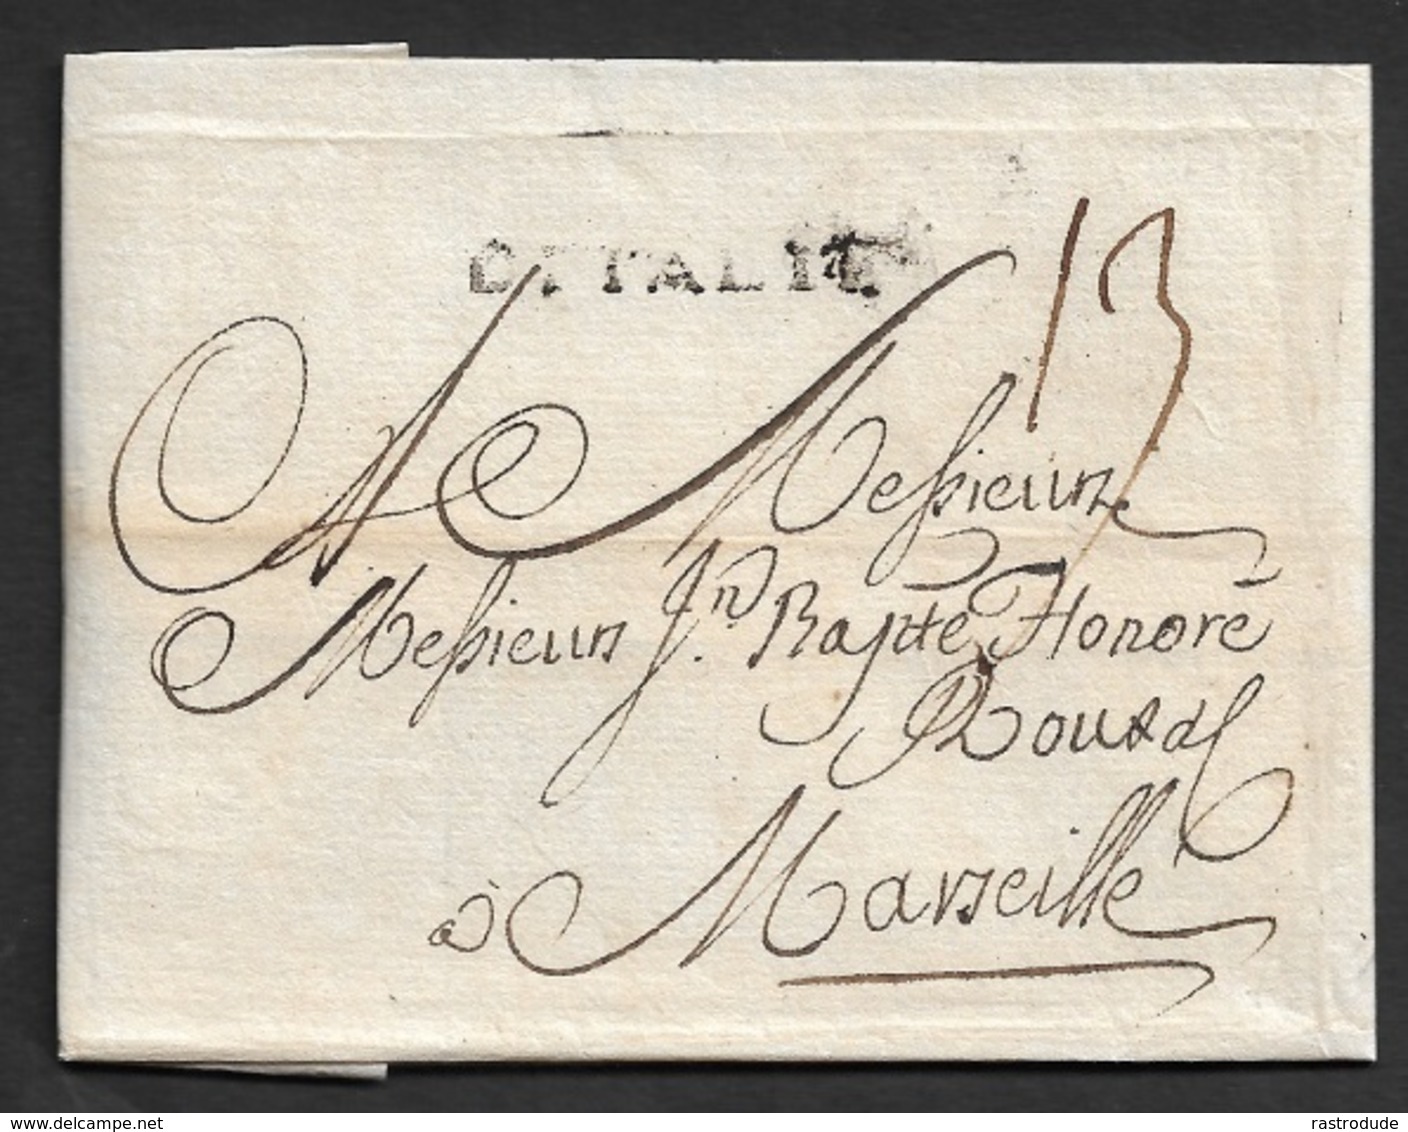 D'ITALIE
13
A Messieurs
Messieurs Jn. Bapte Honoré
Rouxal
à Marseille
www.delcampe.net
rastrodude